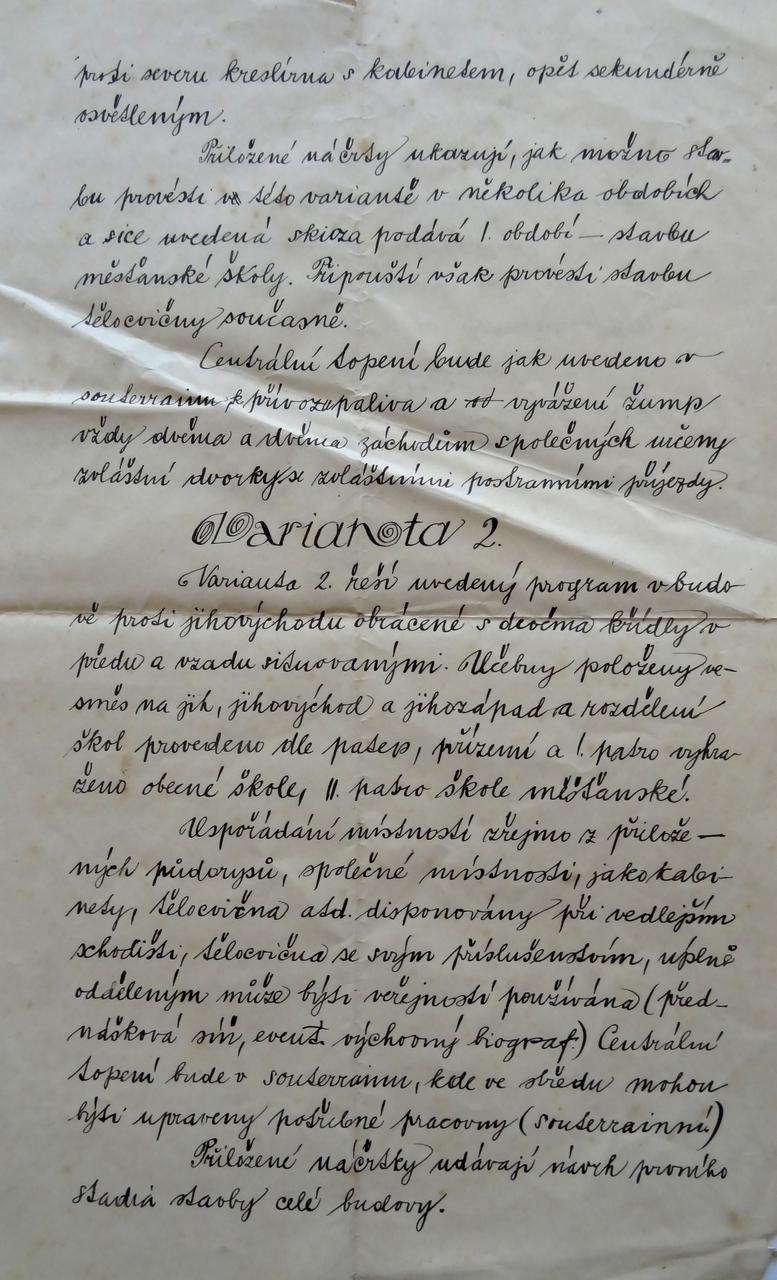 proti severu kreslírna s kabinetem, opět sekundérně
osvětleným.
Přiložené náčrty ukazují, jak možno stav-
bu provésti v této variantě v několika obdobích
a sice uvedená skizza podává I. období – stavbu
měšťanské školy. Připouští však provésti stavbu
tělocvičny současně.
Centrální topení bude jak uvedeno v
souterrainu k přívozu paliva a vyvážení žump
vždy dvěma a dvěma záchodům společných určeny
zvláštní dvorky s zvláštními postranními příjezdy.
Varianta 2.
Varianta 2. řeší uvedený program v budo
vě proti jihovýchodu obrácené s dvěma křídly v
předu a vzadu situovanými. Učebny položeny ve-
směs na jih, jihovýchod a jihozápad a rozdělení
škol provedeno dle pater, přízemí a I. patro vyhra-
ženo obecné škole, II. patro škole měšťanské.
Uspořádání místností zřejmo z přilože-
ných půdorysů, společné místnosti, jako kabi-
nety, tělocvična atd. disponovány při vedlejším
schodišti, tělocvična se svým příslušenstvím, úplně
odděleným může býti veřejností používána (před-
nášková síň, event. výchovný biograf.) Centrální
topení bude v souterrainu, kde ve středu mohou
býti upraveny potřebné pracovny (souterrainní.)
Přiložené náčrtky udávají návrh prvního
stadia stavby celé budovy.